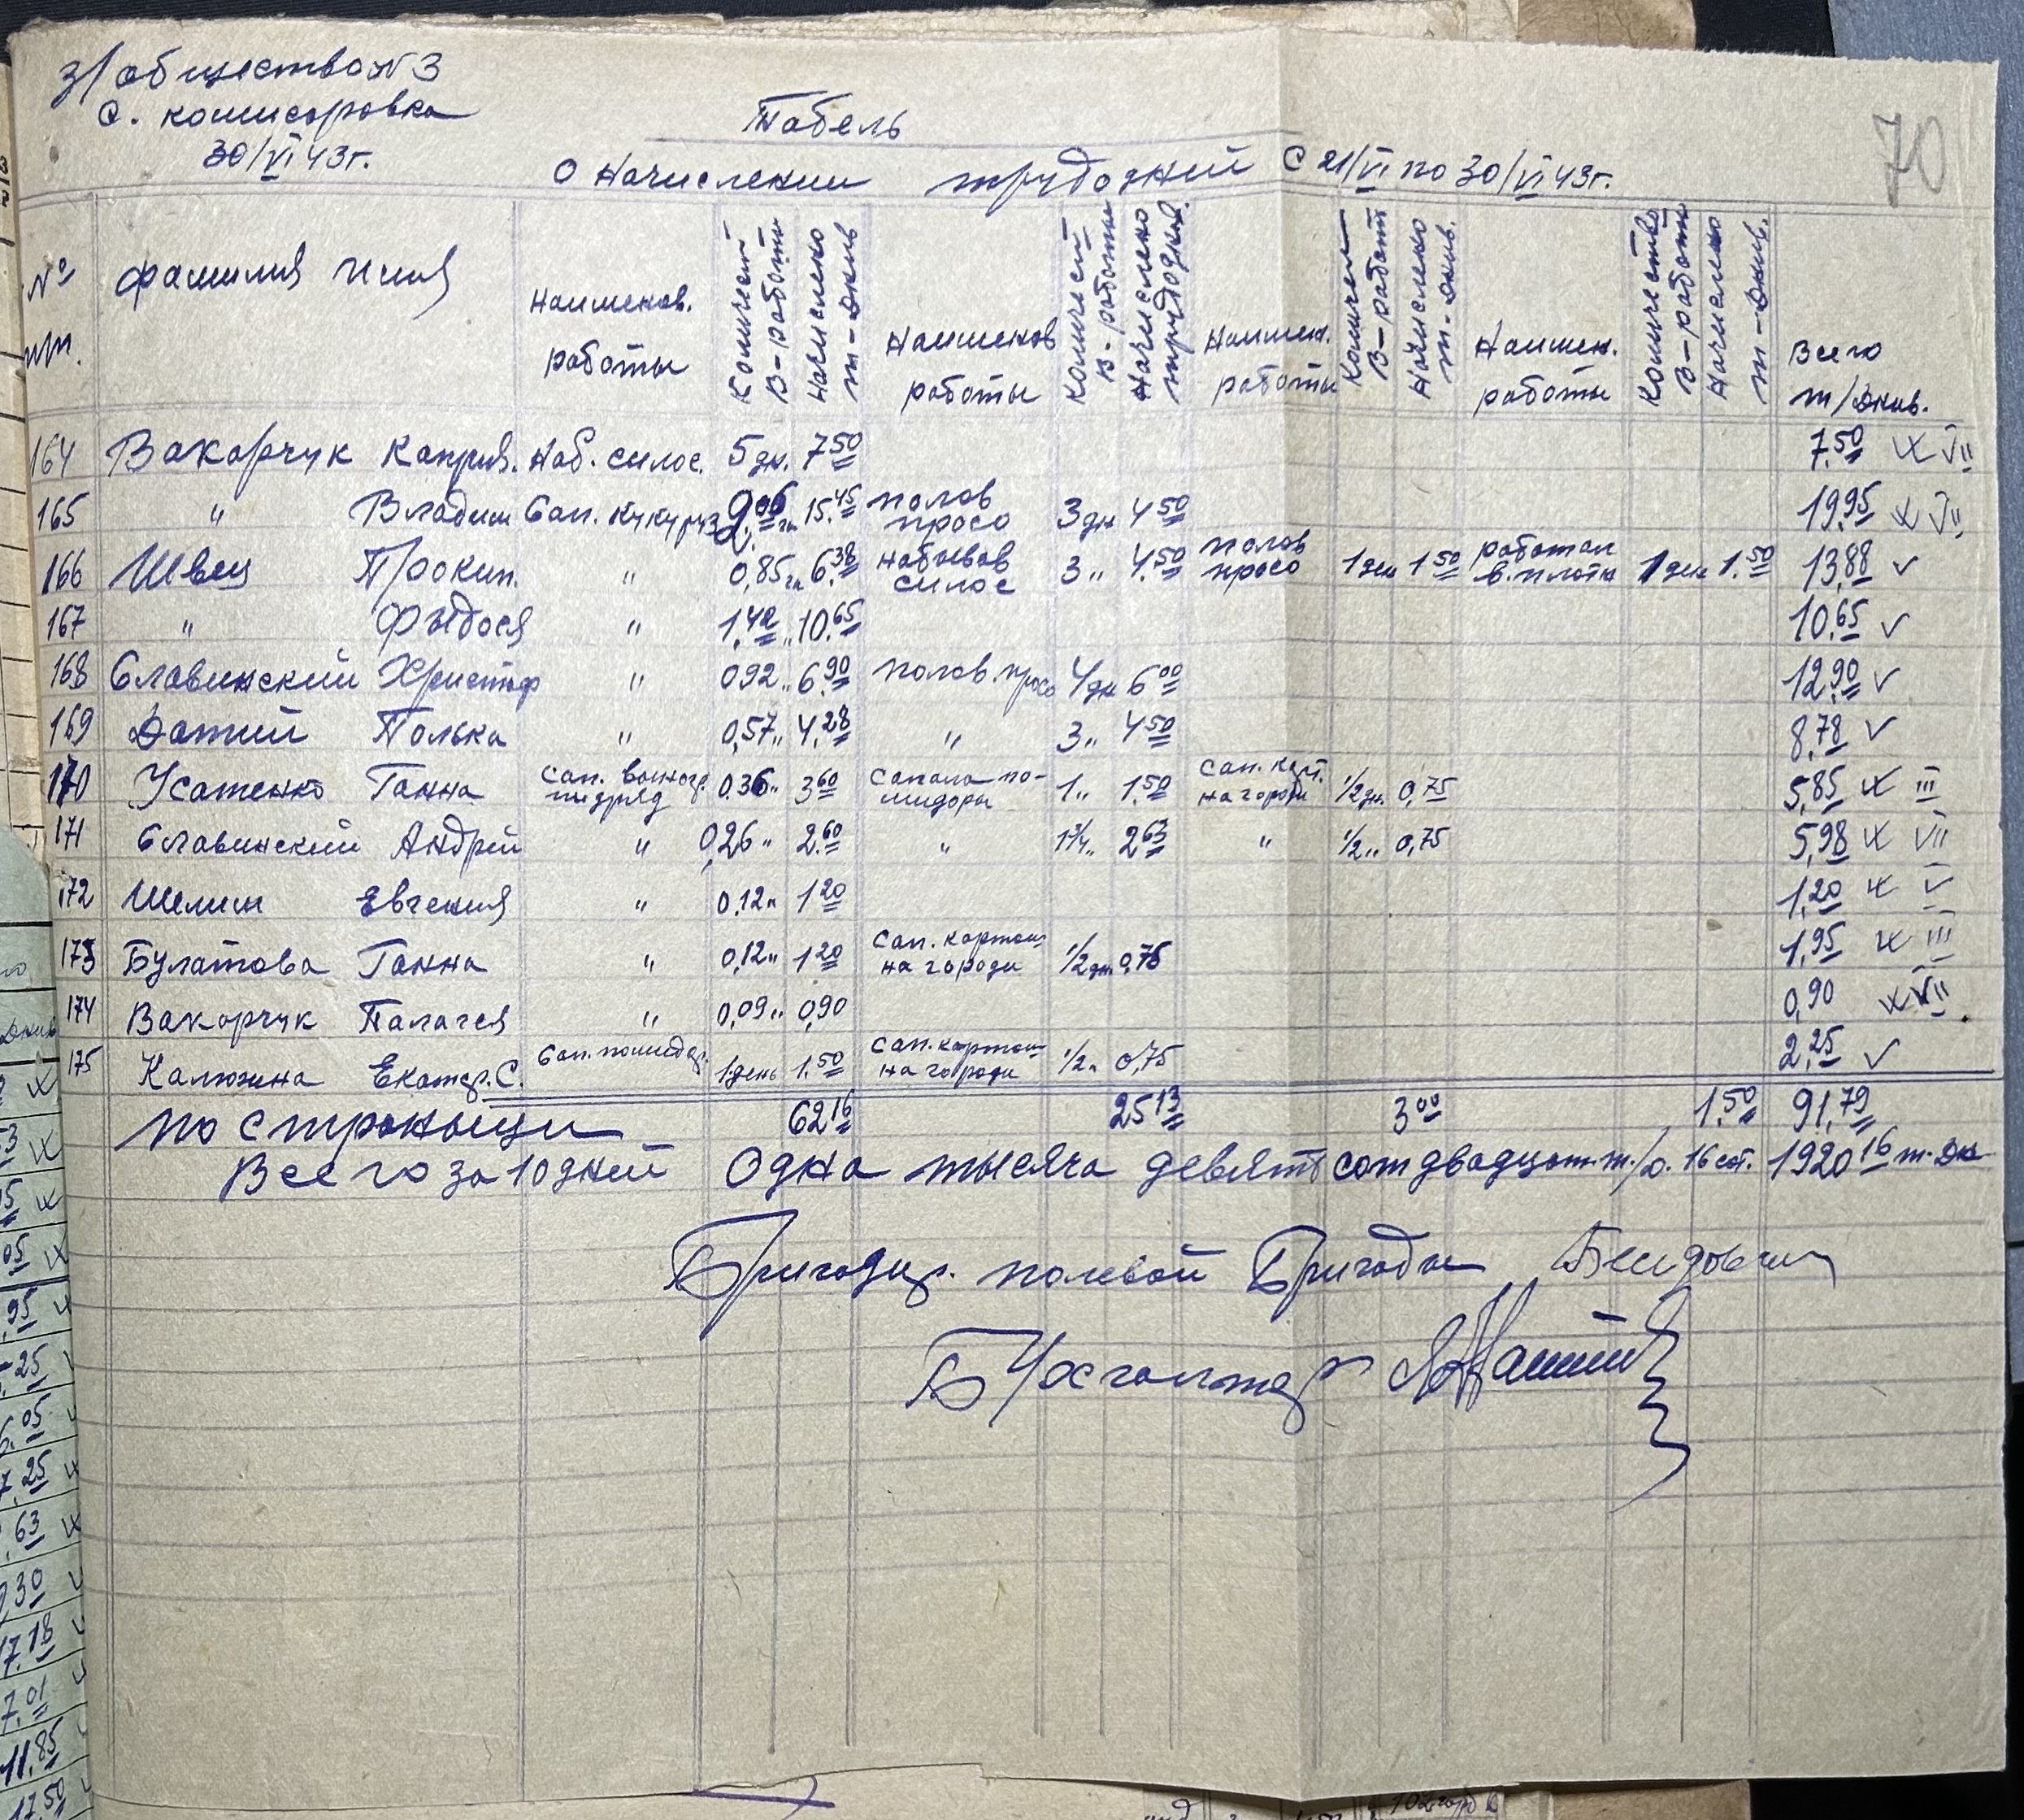 з/общество №3
с. комисоровка
30/VI 43г.
Табель
о начислении трудодний с 21/VI по 30/VI 43г.
70
№ п/п. фамилия имя Наименов. работы Количест В-работы Начислено т-днив Наименов работы Количест В-работы Начислено трудоднив. Наимен. работы Количест В-работ Начислено т-днив. Наимен. работы Количество В-работы Начислено т-днив. Всего т/днив.
164 Вакарчук Каприя. Наб. силос. 5 дн. 7 50 7.50 VII
165 " Владим Сап. кукуруз 2,06 га 15.45 полов просо 3 дн 4 50 19,95 VII
166 Швец Прокип. " 0,85 га 6.38 набивав силос 3 " 4.50 полов просо 1 ден 1 50 работал в. плотн 1 ден 1.50 13,88 ✓
167 " Фыдося " 1,42 " 10.65 10,65 ✓
168 Славинский Христоф " 092 " 6.90 полов. просо 4 дн 6 00 12,90 ✓
169 Датий Полька " 0,57 " 4,28 " 3 " 4 50 8,78 ✓
170 Усатенко Ганна Сап. виногр. 0.36 " 3 60 Сапала помидоры 1 " 1.50 Сап. карт. на городи 1/2 дн. 0,75 5,85 III
171 Славинский Андрей " 0,26 " 2.60 " 1 3/4 " 2 63 " 1/2 " 0,75 5,98 VII
172 Шелин Евгения " 0,12 " 1 20 1,20 V
173 Булатова Ганна " 0,12 " 1 20 Сап. картош на городи 1/2 дн. 0,75 1,95 III
174 Вакорчук Палагея " 0,09 " 0,90 0,90 VII
175 Калюжина Екатер. С. Сап. помидор. 1 день 1.50 Сап. картош на городи 1/2 " 0,75 2,25 ✓
по строныци 62 16 25 13 3 00 1.50 91,79
Всего за 10 дней Одна тысяча девятсот двадцат т./д. 16 сот. 1920 16 т. дн
Бригадир. полевой Бригады
Бухгалтер